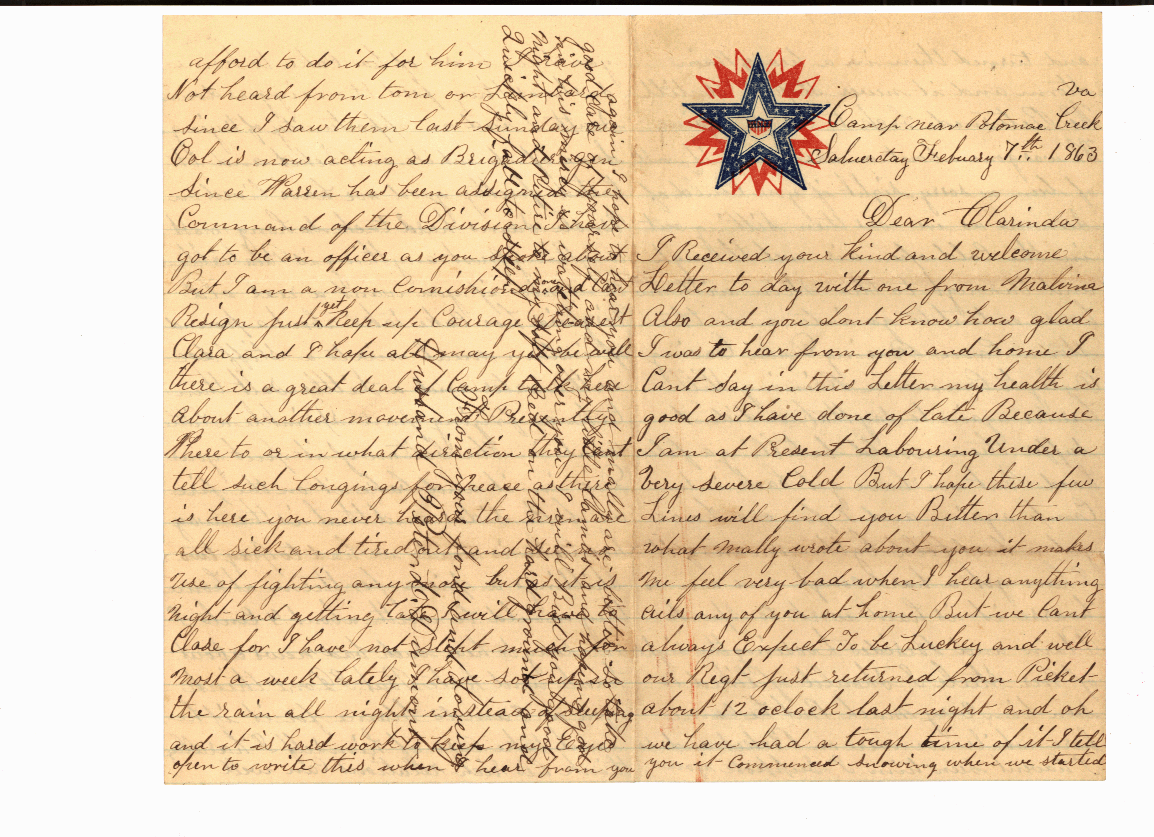 Va
Camp near Potomac Creek
Saluerday Febuary 7th 1863
Dear Clarinda
I Received your kind and welcome
Letter to day with one from Malvina
Also and you dont know how glad
I was to hear from you and home I
Cant say in this Letter my health is
good as I have done of late Because
I am at Present Labouring Under a
Very severe Cold But I hope these few
Lines will find you Better than
what Mally wrote about you it makes
me feel very bad when I hear anything
ails any of you at home But we Cant
always Expect To be Luckey and well
our Regt just returned from Picket
about 12 oclock last night and oh
we have had a tough time of it I tell
you it Commenced snowing when we started
afford to do it for him I have
Not heard from tom or
since I saw them last Sunday our
Col is now acting as Brigadier gen
since Warren has been assigned the
Command of the Division I have
got to be an officer as you spoke about
But I am a non Comishioned one and Can
Resign just yet Keep up Courage Dearest
Clara and I hope all may yet be well
there is a great deal of Camp talk here
about another movement Presently
Where to or in what direction they cant
tell such longings for Peace as there
is here you never heard the men are
all sick and tired out and see no
use of fighting any more but as it is
Night and getting late I will have to
Close for I have not slept much for
Most a week lately I have sot up in
the rain all night instead of sleeping
and it is hard work to keep my Eyes
open to write this when I hear from you
again I hope to hear you and mally are better so take
good care of yourself and my little lambs and hoping god
in his mercy is watching over you I will Bid you good
Night and Retire to my soft Bed on the hard ground and
Quickly fall to sleep
From your fond and loving
Husband